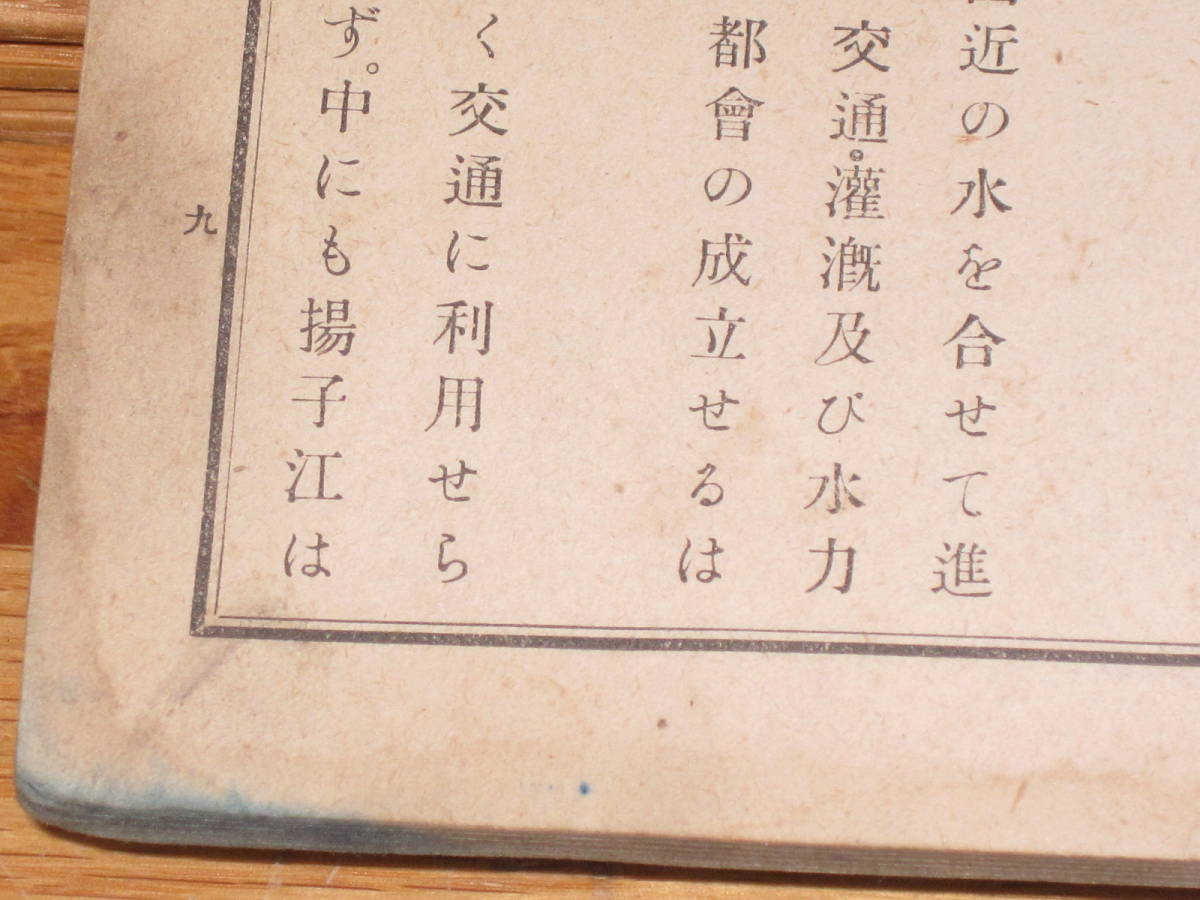 近の水を合せて進
交通・灌漑及び水力
都會の成立せるは
く交通に利用せら
ず。中にも揚子江は
九